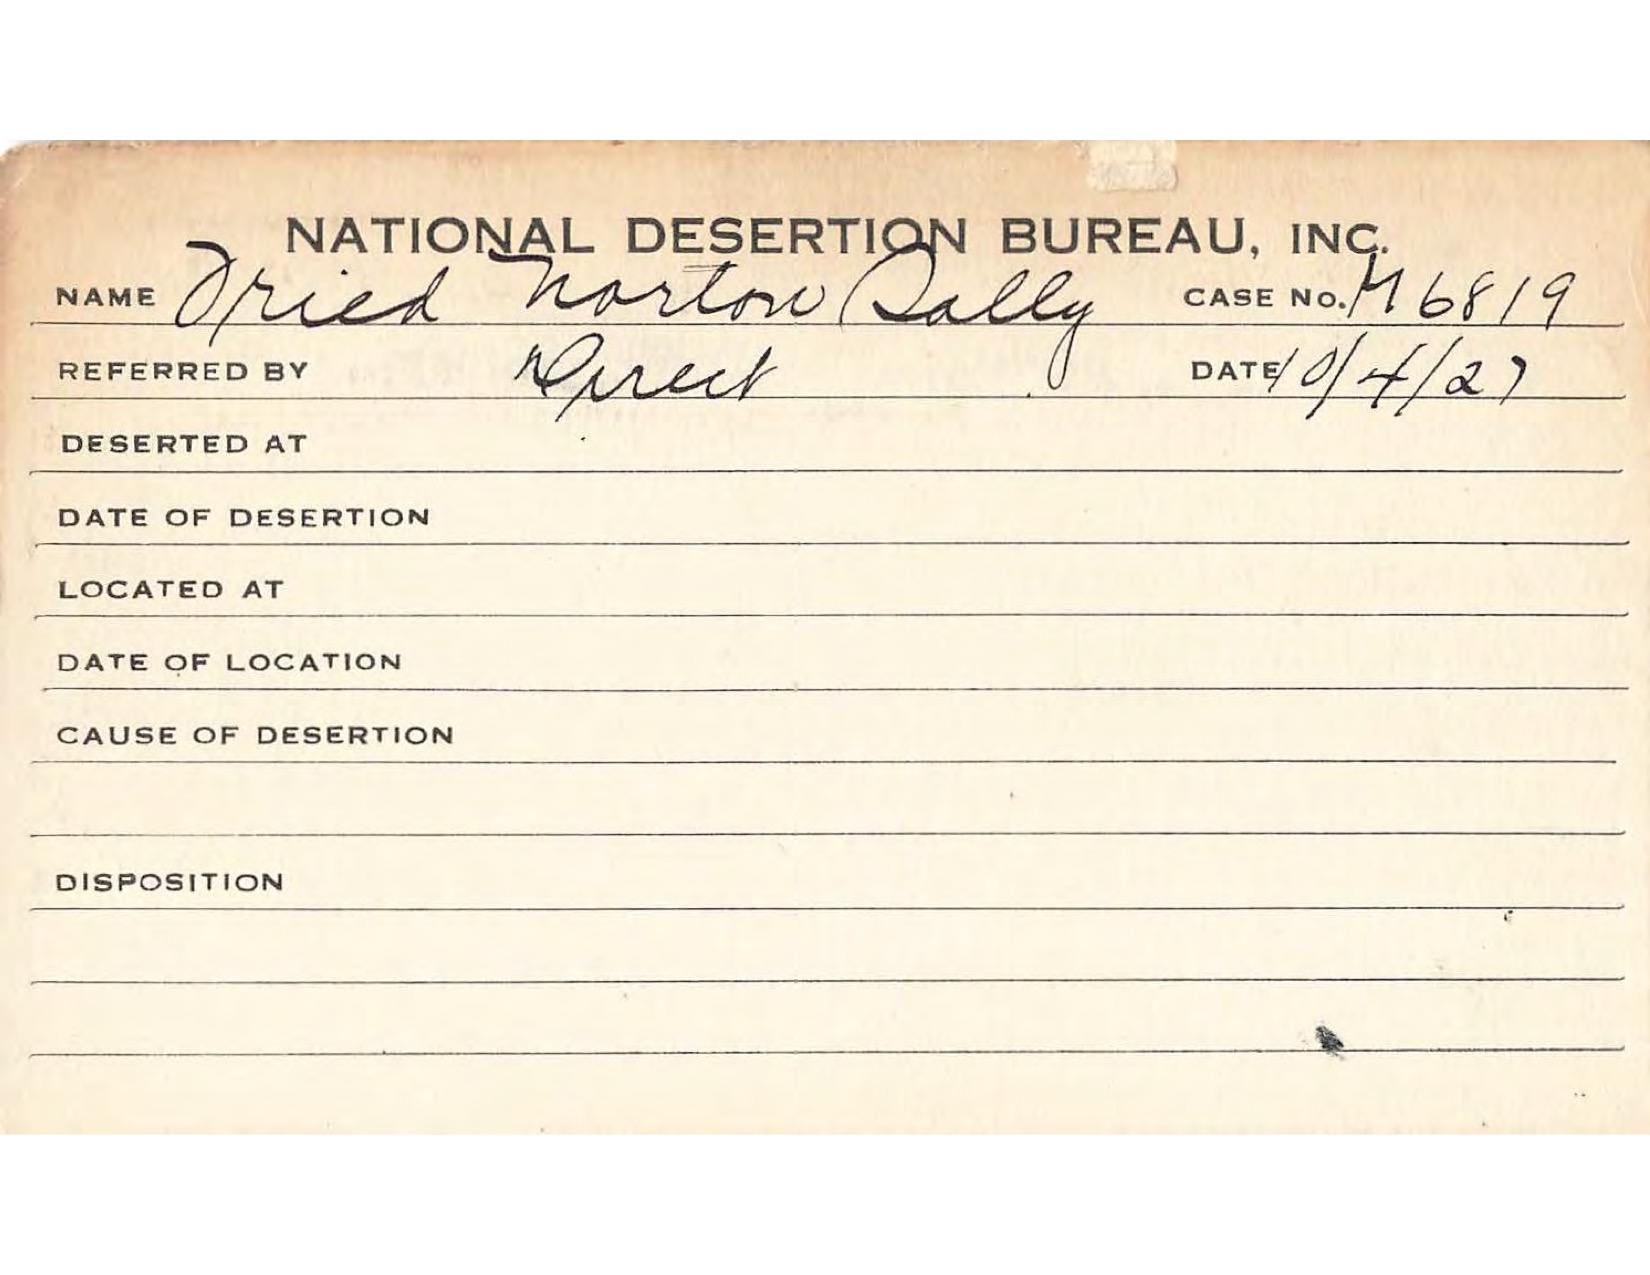 NATIONAL DESERTION BUREAU, INC.
NAME Fried Norton (Sally CASE NO. M6819
REFERRED BY Direct DATE 10/4/27
DESERTED AT
DATE OF DESERTION
LOCATED AT
DATE OF LOCATION
CAUSE OF DESERTION
DISPOSITION